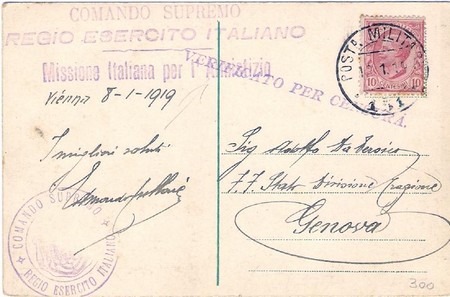 COMANDO SUPREMO
REGIO ESERCITO ITALIANO
Missione Italiana per l'Armistizio
VERIFICATO PER CENSURA.
POSTA MILITA
151
10 10
Vienna 8-1-1919
I migliori saluti
Sig Adolfo
FF. Stato Divisione
Genova
COMANDO SUPREMO
REGIO ESERCITO ITALIANO
300